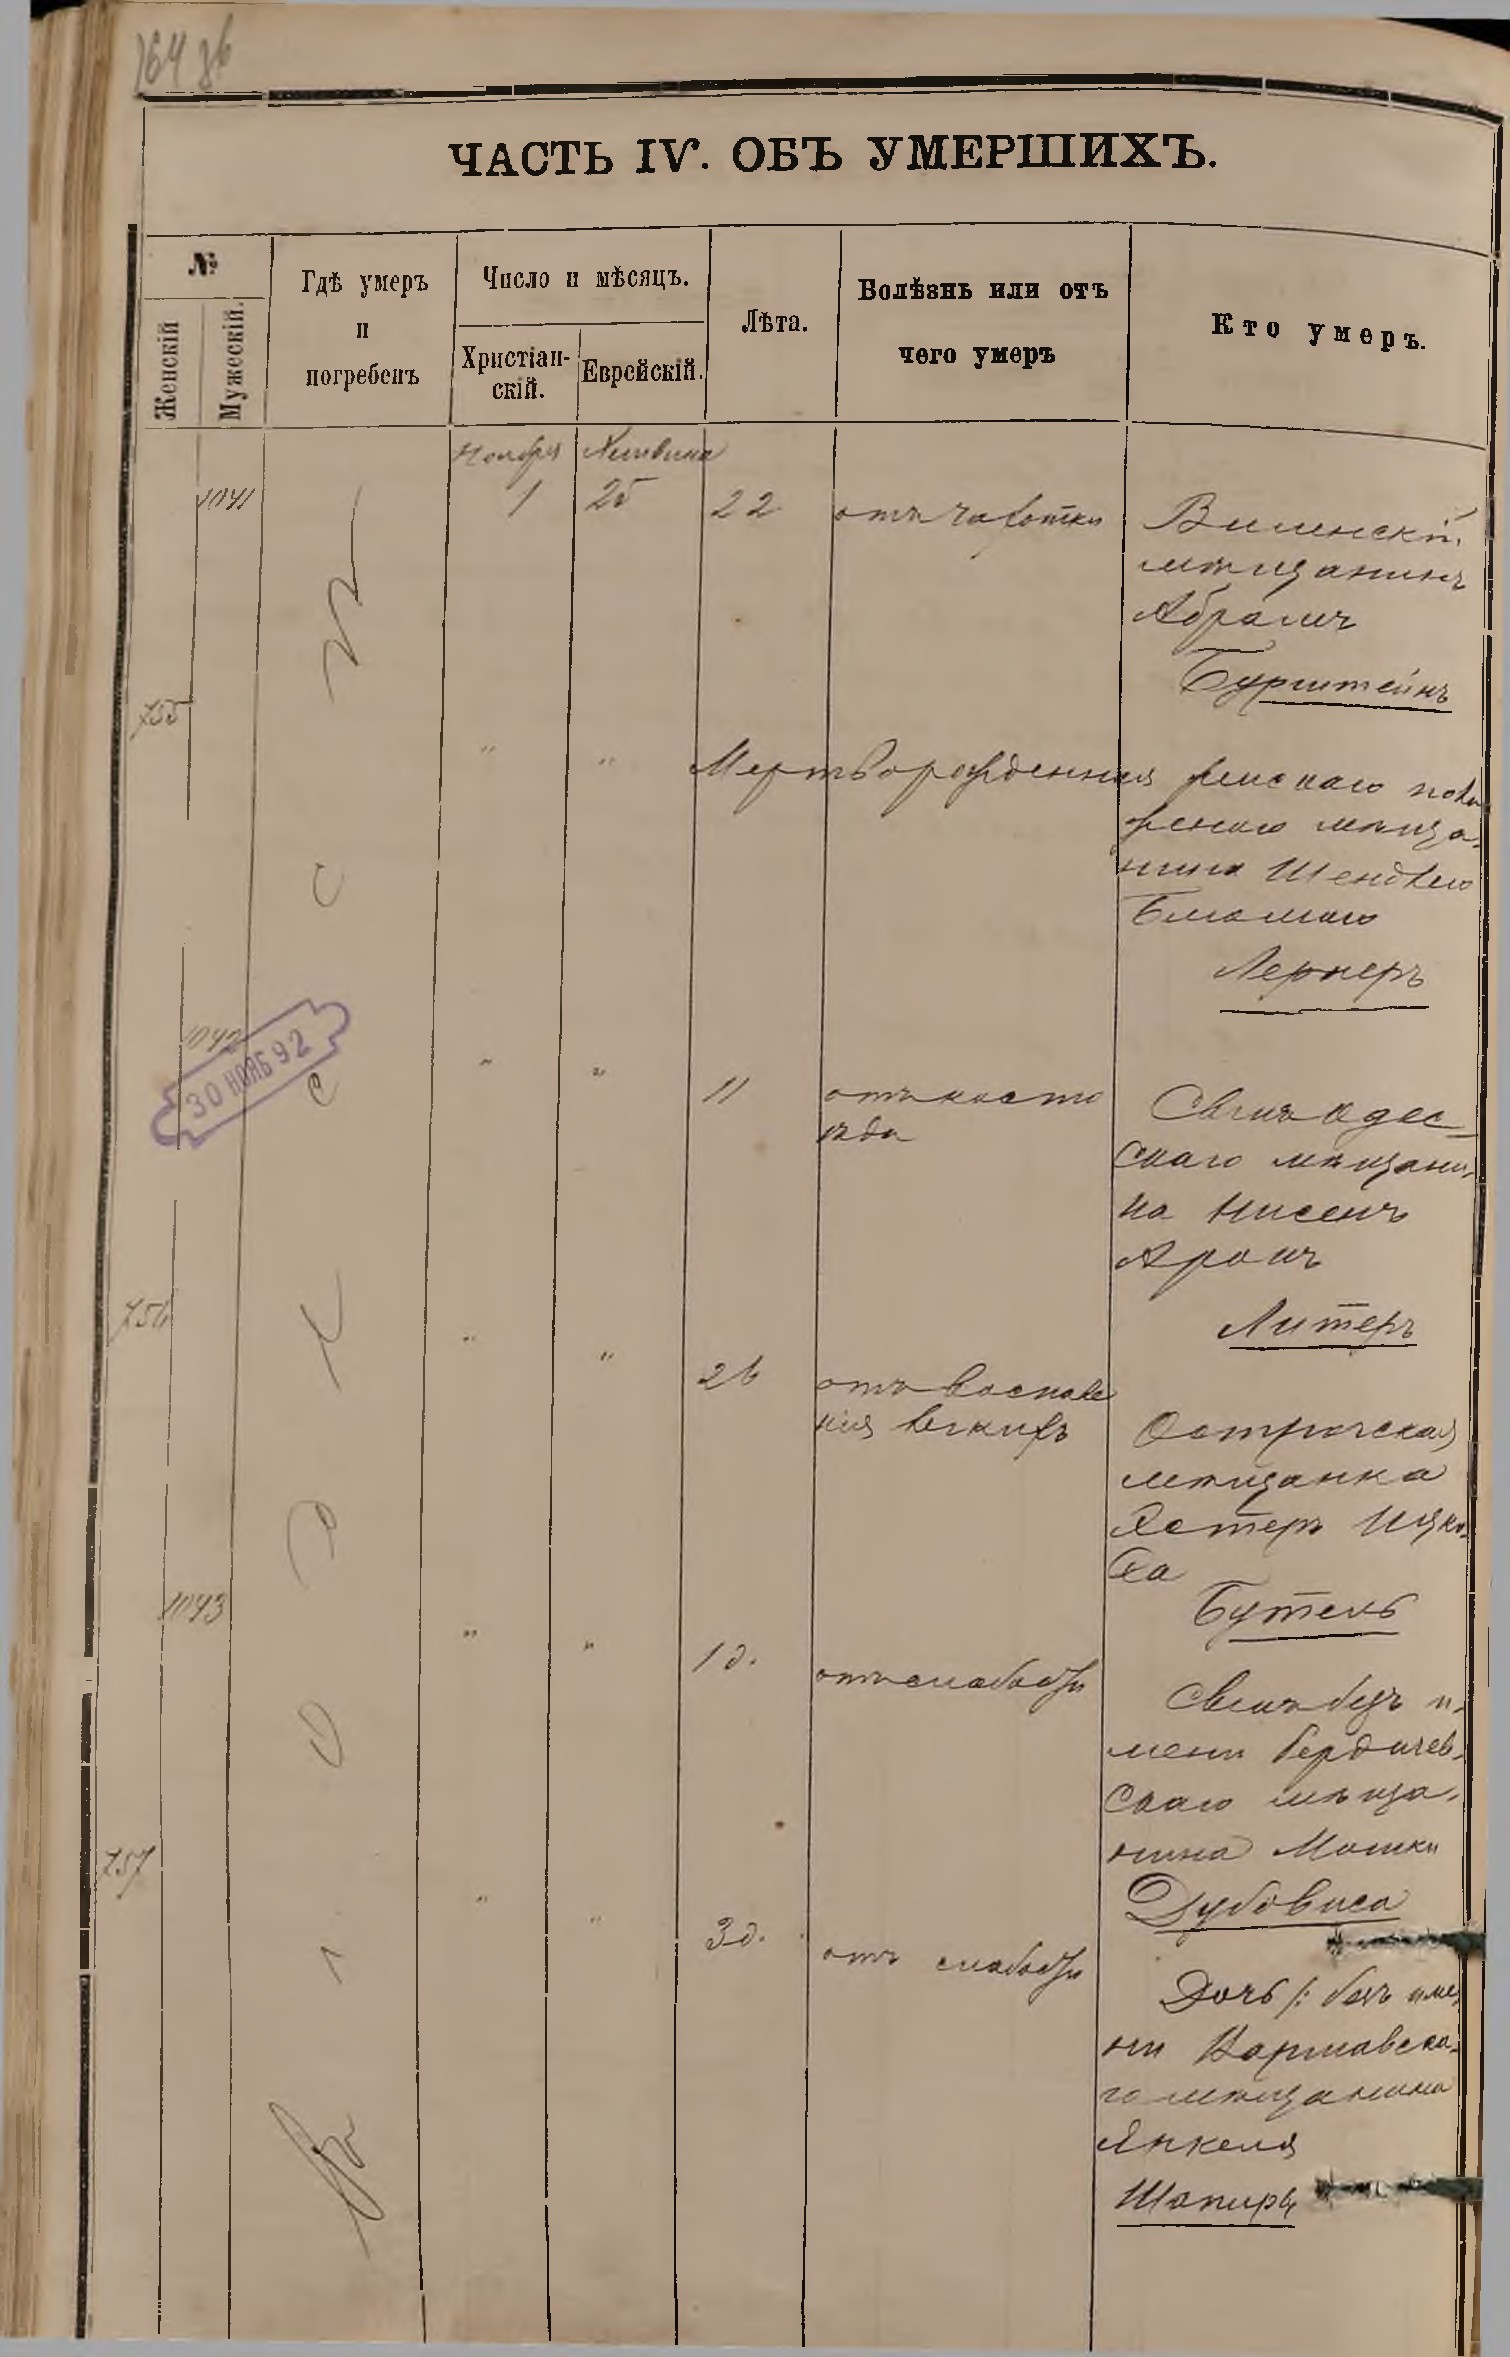 164 об
ЧАСТЬ IV. ОБЪ УМЕРШИХЪ.
№
Женскій
Мужескій.
Гдѣ умеръ
и
погребенъ
Число и мѣсяцъ.
Христіан-
скій.
Еврейскій.
Лѣта.
Болѣзнь или отъ
чего умеръ
Кто умеръ.
Ноября
1041
1
25
22
отъ чахотки
Виленскій
мѣщанинъ
Абрамъ
Бурштейнъ
755
"
"
Мертворожденная
мѣща-
нина Шенделя
Лернеръ
1042
30 НОЯБ 92
"
"
11
отъ косто
ѣда
Сынъ одес-
скаго мѣщани-
на Нисенъ
Аронъ
Литеръ
756
"
"
26
отъ воспале
нія легкихъ
Острогская
мѣщанка
Эстеръ Ицко-
ва
Бутель
1043
"
"
1 д.
отъ слабости
Сынъ безъ и-
мени бердичев-
скаго мѣща-
нина Мошки
Дубовиса
757
"
"
3 д.
отъ слабости
Дочь /: безъ име-
ни Варшавска-
го мѣщанина
Янкеля
Шапиры
въ Одессѣ